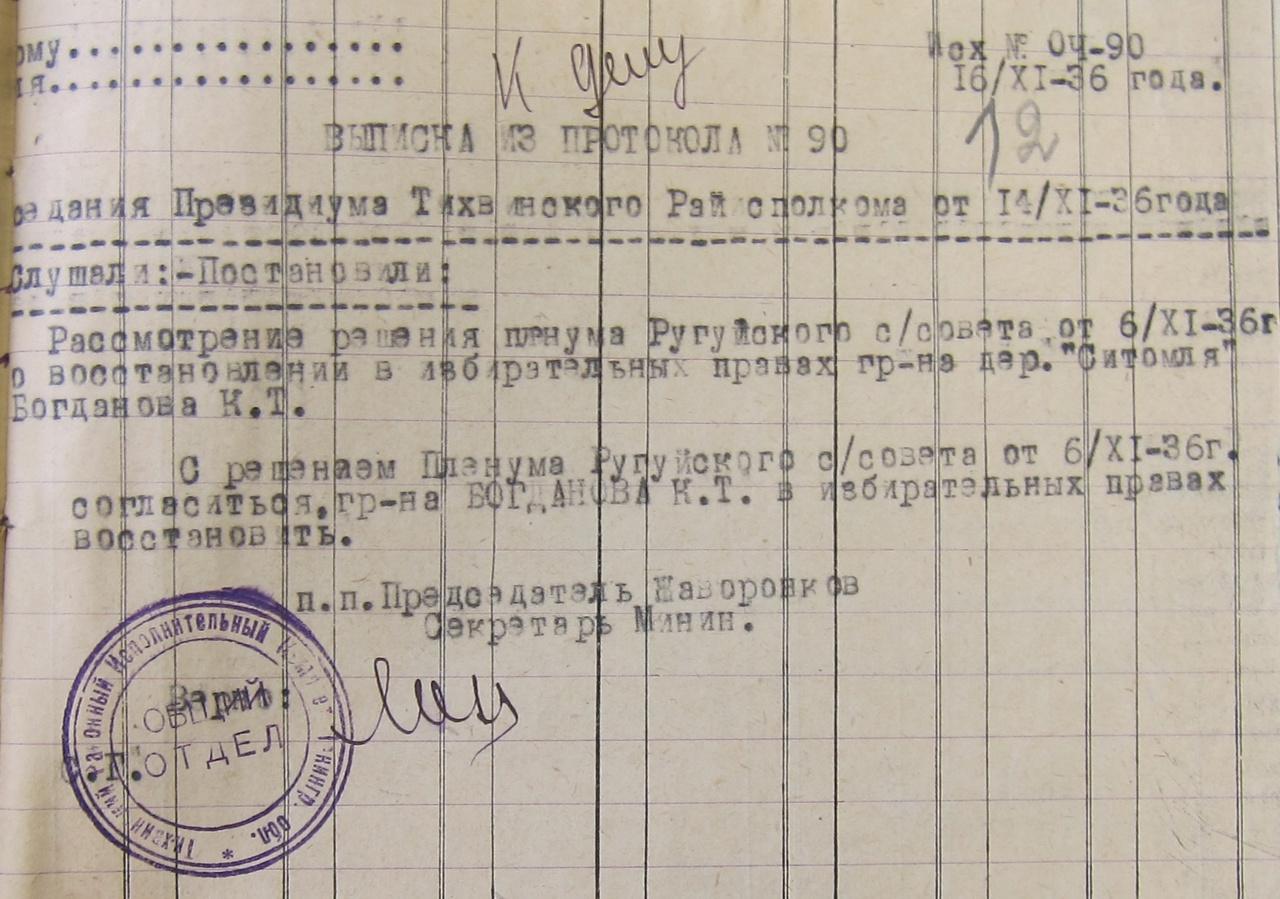 ому................
ия................
К делу
Исх № ОЧ-90
16/XI-36 года.
12
ВЫПИСКА ИЗ ПРОТОКОЛА № 90
седания Президиума Тихвинского Райисполкома от 14/XI-36года
Слушали:-Постановили:
Рассмотрение решения пленума Ругуйского с/совета от 6/XI-36г
о восстановлении в избирательных правах гр-на дер."Ситомля"
Богданова К.Т.
С решением Пленума Ругуйского с/совета от 6/XI-36г.
согласиться,гр-на БОГДАНОВА К.Т. в избирательных правах
восстановить.
п.п.Председатель Жаворонков
Секретарь Минин.
Верно:
Тихвинский Районный Исполнительный Комитет Ленингр. обл. *
ОБЩИЙ
ОТДЕЛ